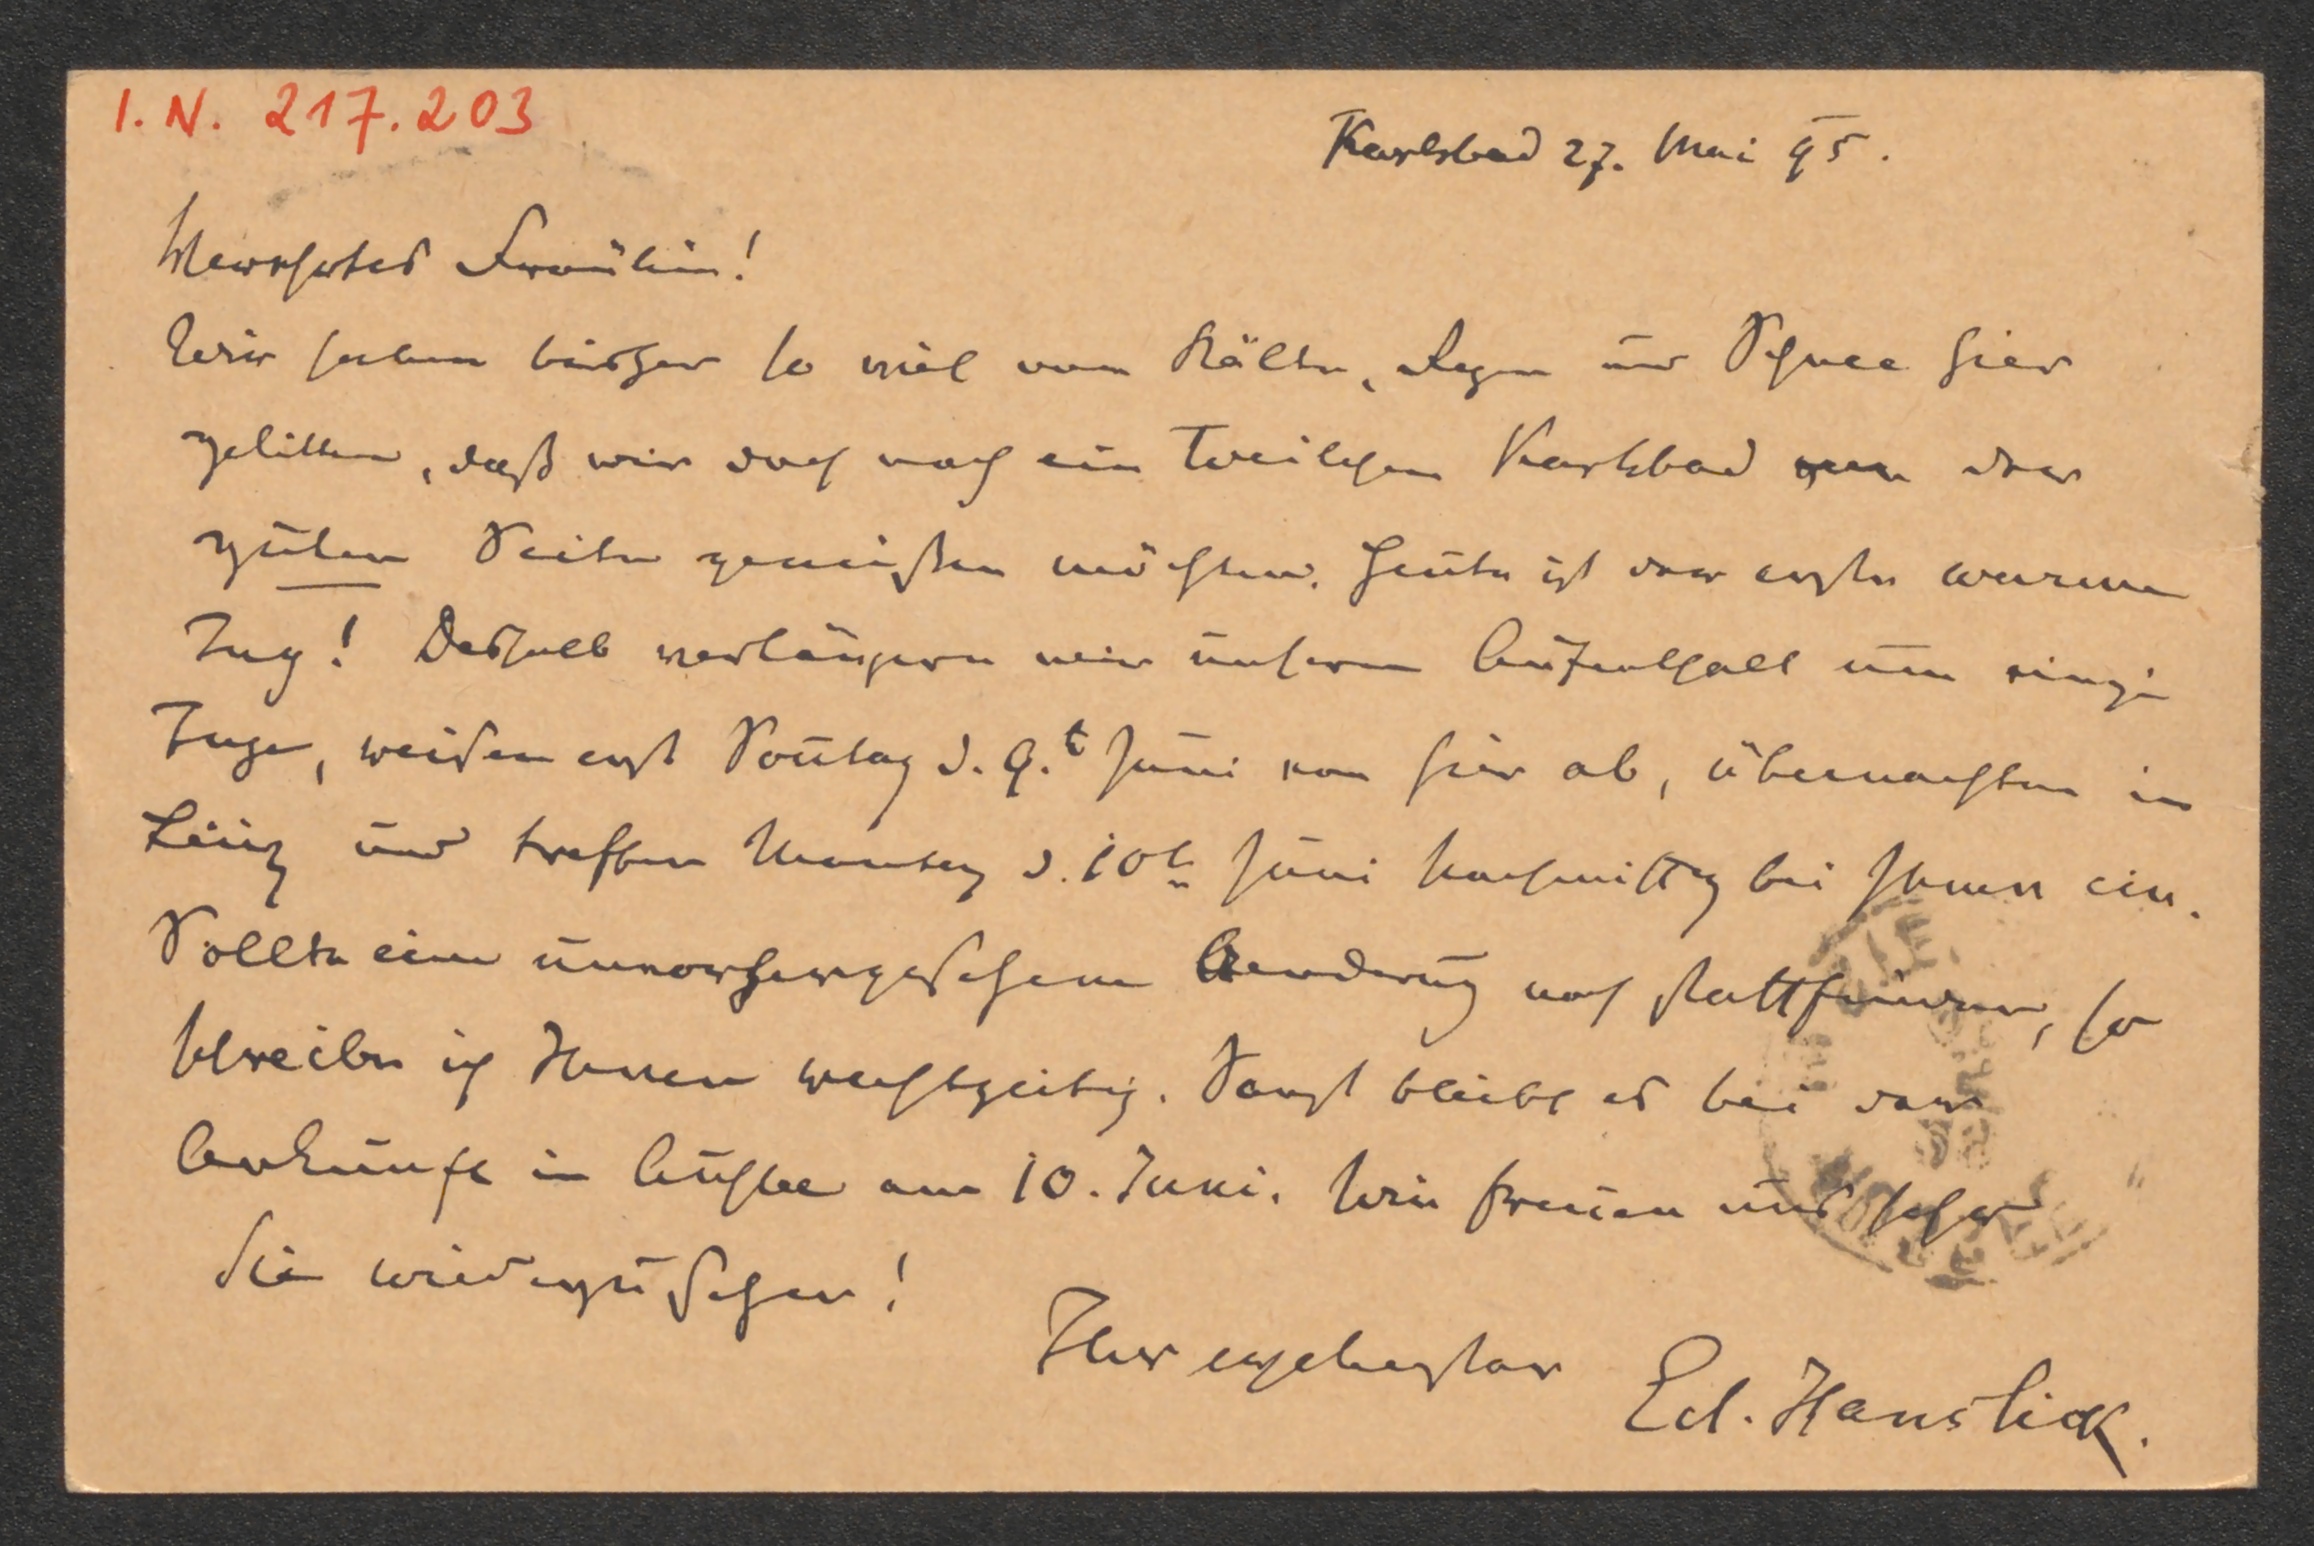 I. N. 217.203
Karlsbad 27. Mai 95.
Verehrtes Fräulein!
Wir haben bisher so viel von Kälte, Regen und Schnee hier
gelitten, daß wir doch noch ein Theilchen Karlsbad von der
guten Seite genießen möchten. Heute ist der erste warme
Tag! Deshalb verlängern wir unsern Aufenthalt um einige
Tage, reisen erst Sontag d. 9.t Juni von hier ab, übernachten in
Linz und treffen Montag d. 10tn Juni Nachmittag bei Ihnen ein.
Sollte eine unvorhergesehene Aenderung noch stattfinden, so
schreibe ich Ihnen rechtzeitig. Sonst bleibt es bei der
Ankunft in Aussee am 10. Juni. Wir freuen uns sehr
Sie wiederzusehen!
Ihr ergebenster
Ed. Hanslick.